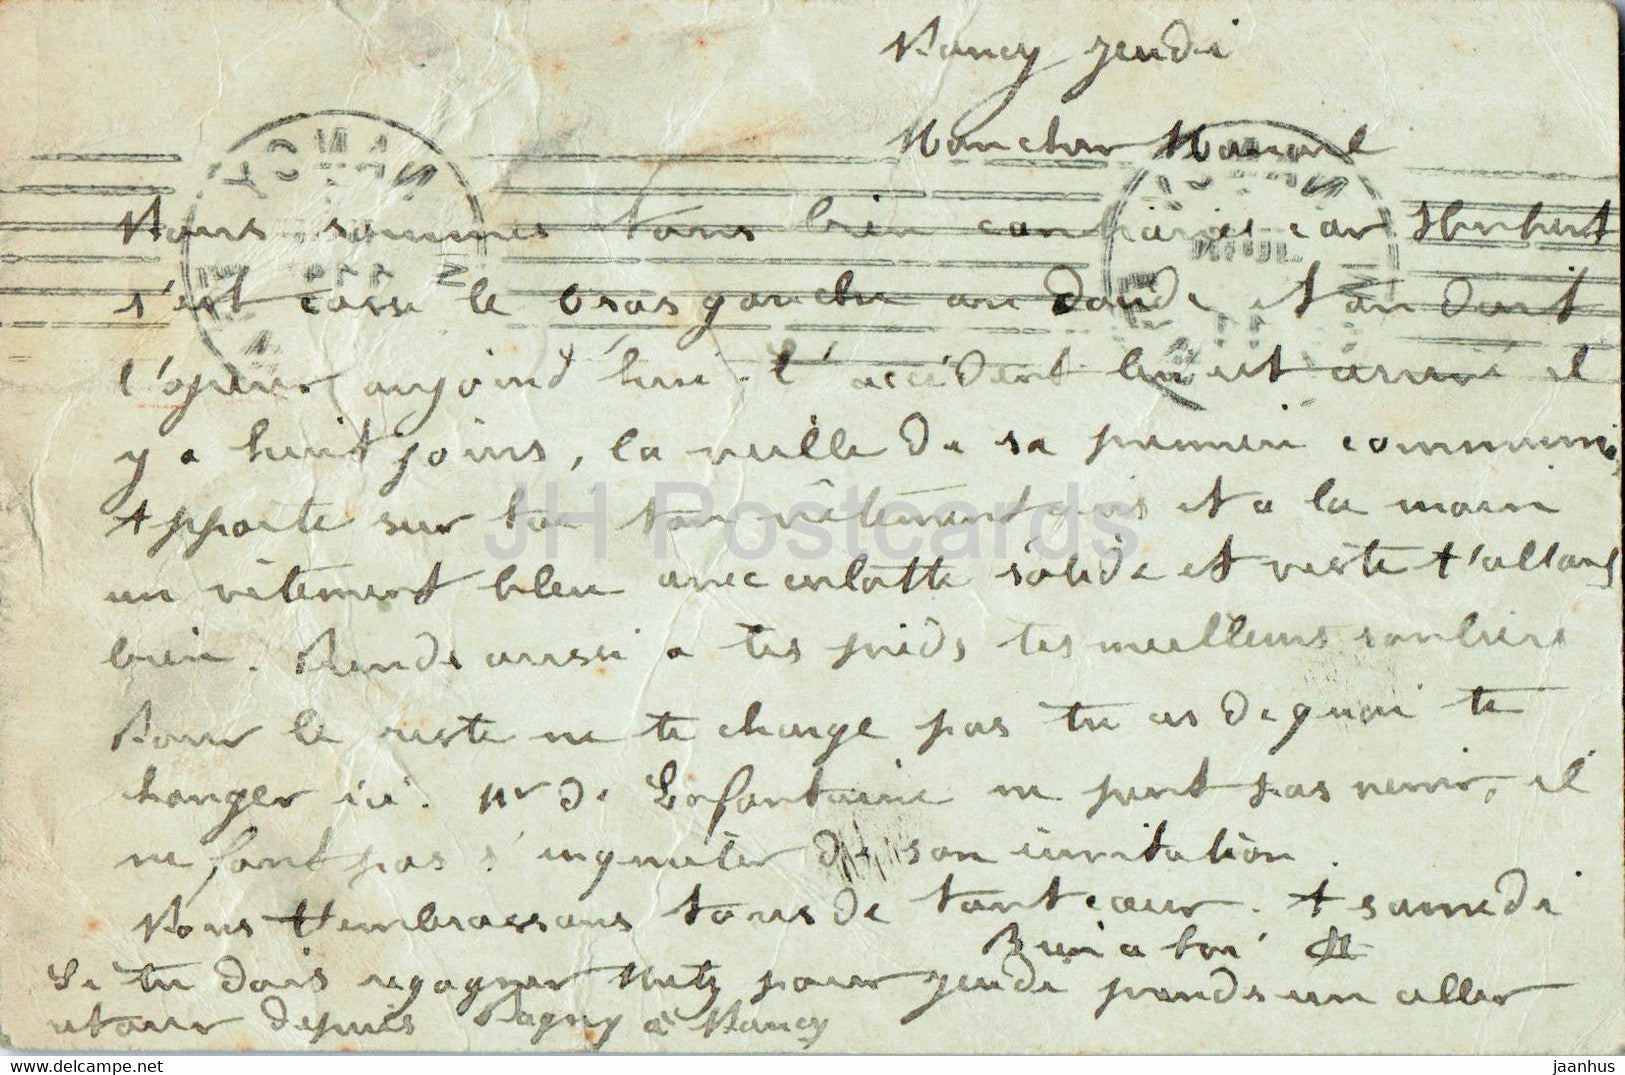 Nancy jeudi
Mon cher Marcel
Nous sommes tous bien car Hubert
s'est cassé le bras gauche au coude et on doit
l'opérer aujourd'hui. l'accident lui est arrivé il
y a huit jours, la veille de sa première communion
Apporte sur toi ton vêtement gris et a la main
un vêtement bleu avec culotte solide et veste t'allant
bien. Prends aussi a tes pieds tes meilleurs souliers
Pour le reste ne te charge pas tu as de quoi te
changer ici. Mr de Lafontaine ne peut pas venir, il
ne faut pas s'inquiéter de son invitation.
Nous t'embrassons tous de tout cœur. A samedi
Bien a toi
Si tu dois regagner Metz pour jeudi prends un aller
retour depuis Pagny à Nancy
NANCY
JH Postcards
hippostcard.com
jaanhus